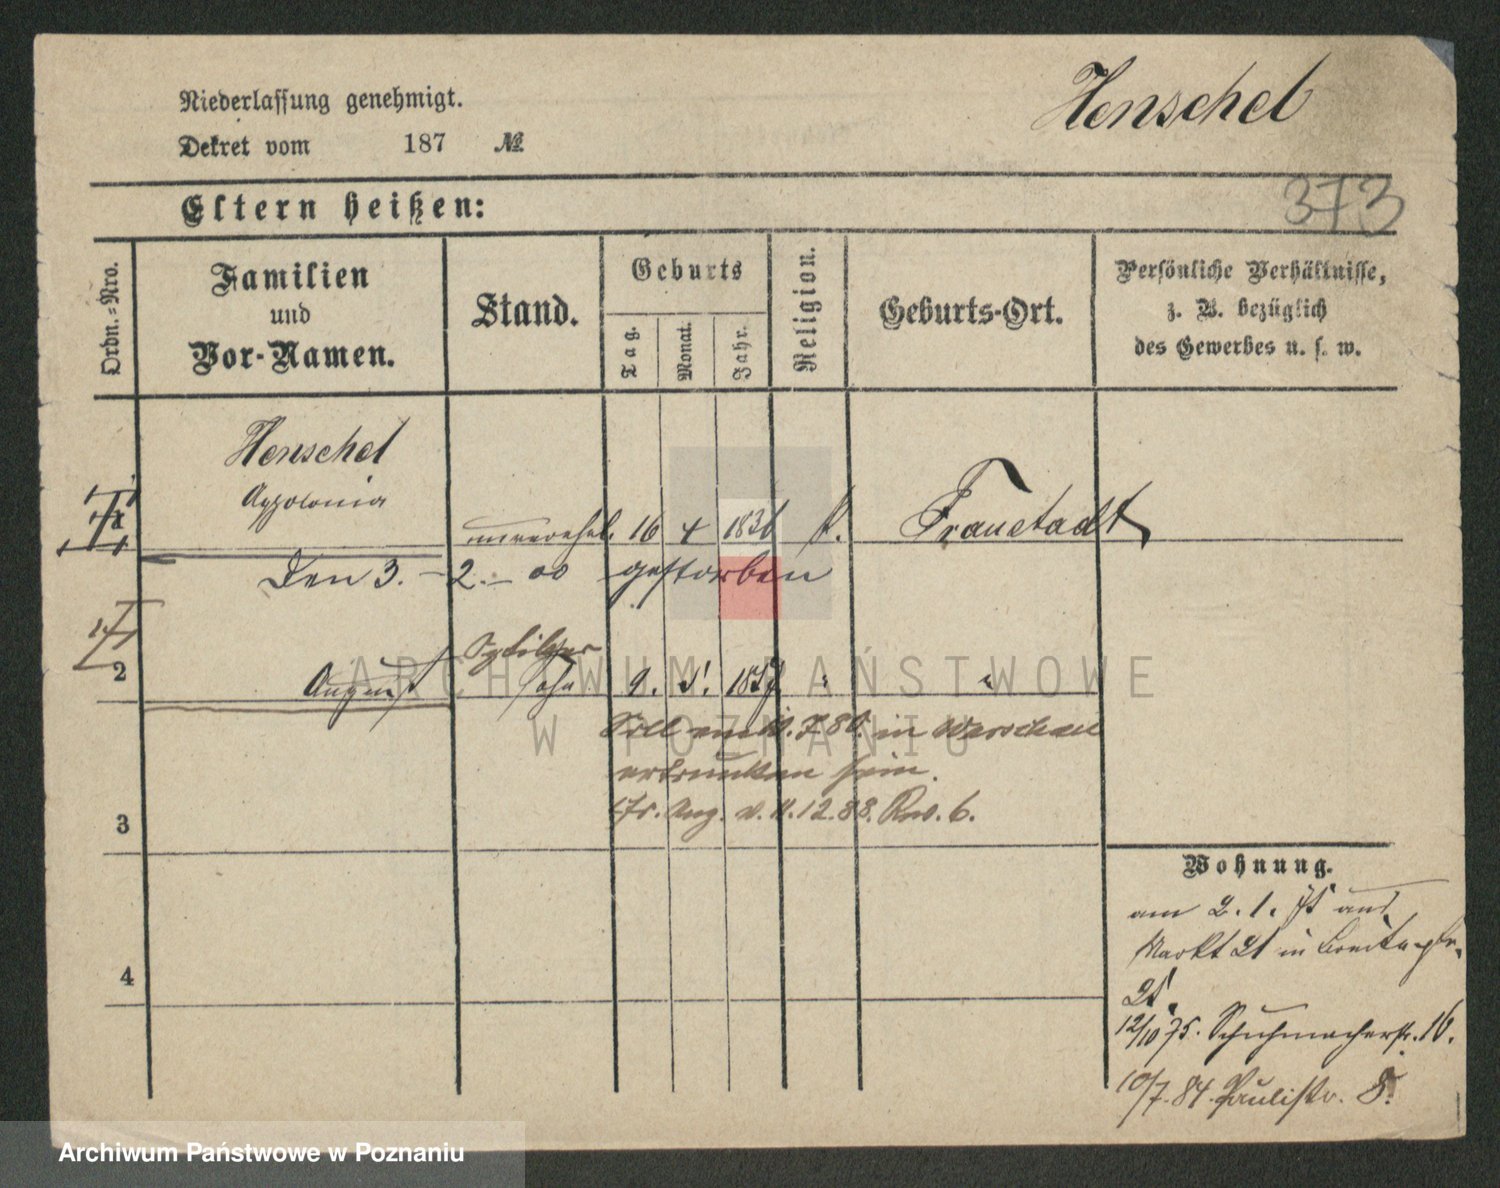 Niederlassung genehmigt.
Henschel
Dekret vom 187 №
373
Eltern heißen:
Ordn.-Nro.
Familien
und
Vor-Namen.
Stand.
Geburts
Tag.
Monat.
Jahr.
Religion.
Geburts-Ort.
Persönliche Verhältnisse,
z. B. bezüglich
des Gewerbes u. s. w.
Henschel
Appolonia
unverehel. 16 4 1831 k. Fraustadt
Den 3. - 2. - 00 gestorben
2 August Sohn 9. 5. 1857 " "
Soll am 10.7.80. in Warschau
ertrunken sein.
Ang. v. 11.12.88. Rev. 6.
3
4
Wohnung.
am 2.1.75 aus
Markt 21 in Breitestr.
25.
12/10 75. Schuhmacherstr. 16.
10/7. 84. Paulistr. 8.
ARCHIWUM PAŃSTWOWE
W POZNANIU
Archiwum Państwowe w Poznaniu